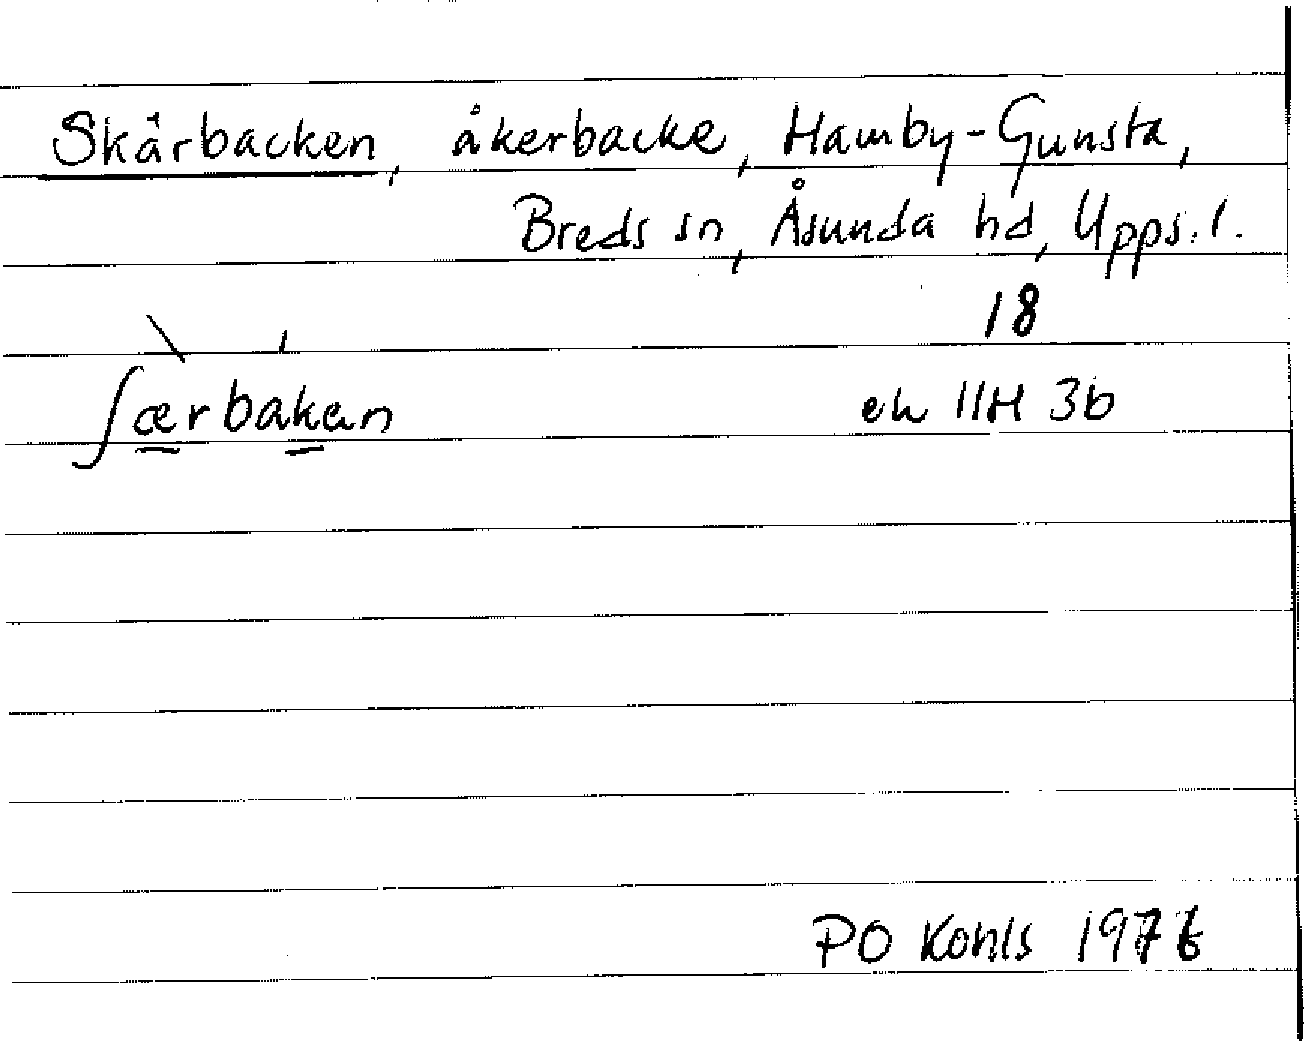 Skärbacken, åkerbacke, Hamby-Gunsta,
Breds sn, Åsunda hd, Upps. l.
18
ʃærbakan ek 11H 3b
PO Kohls 197